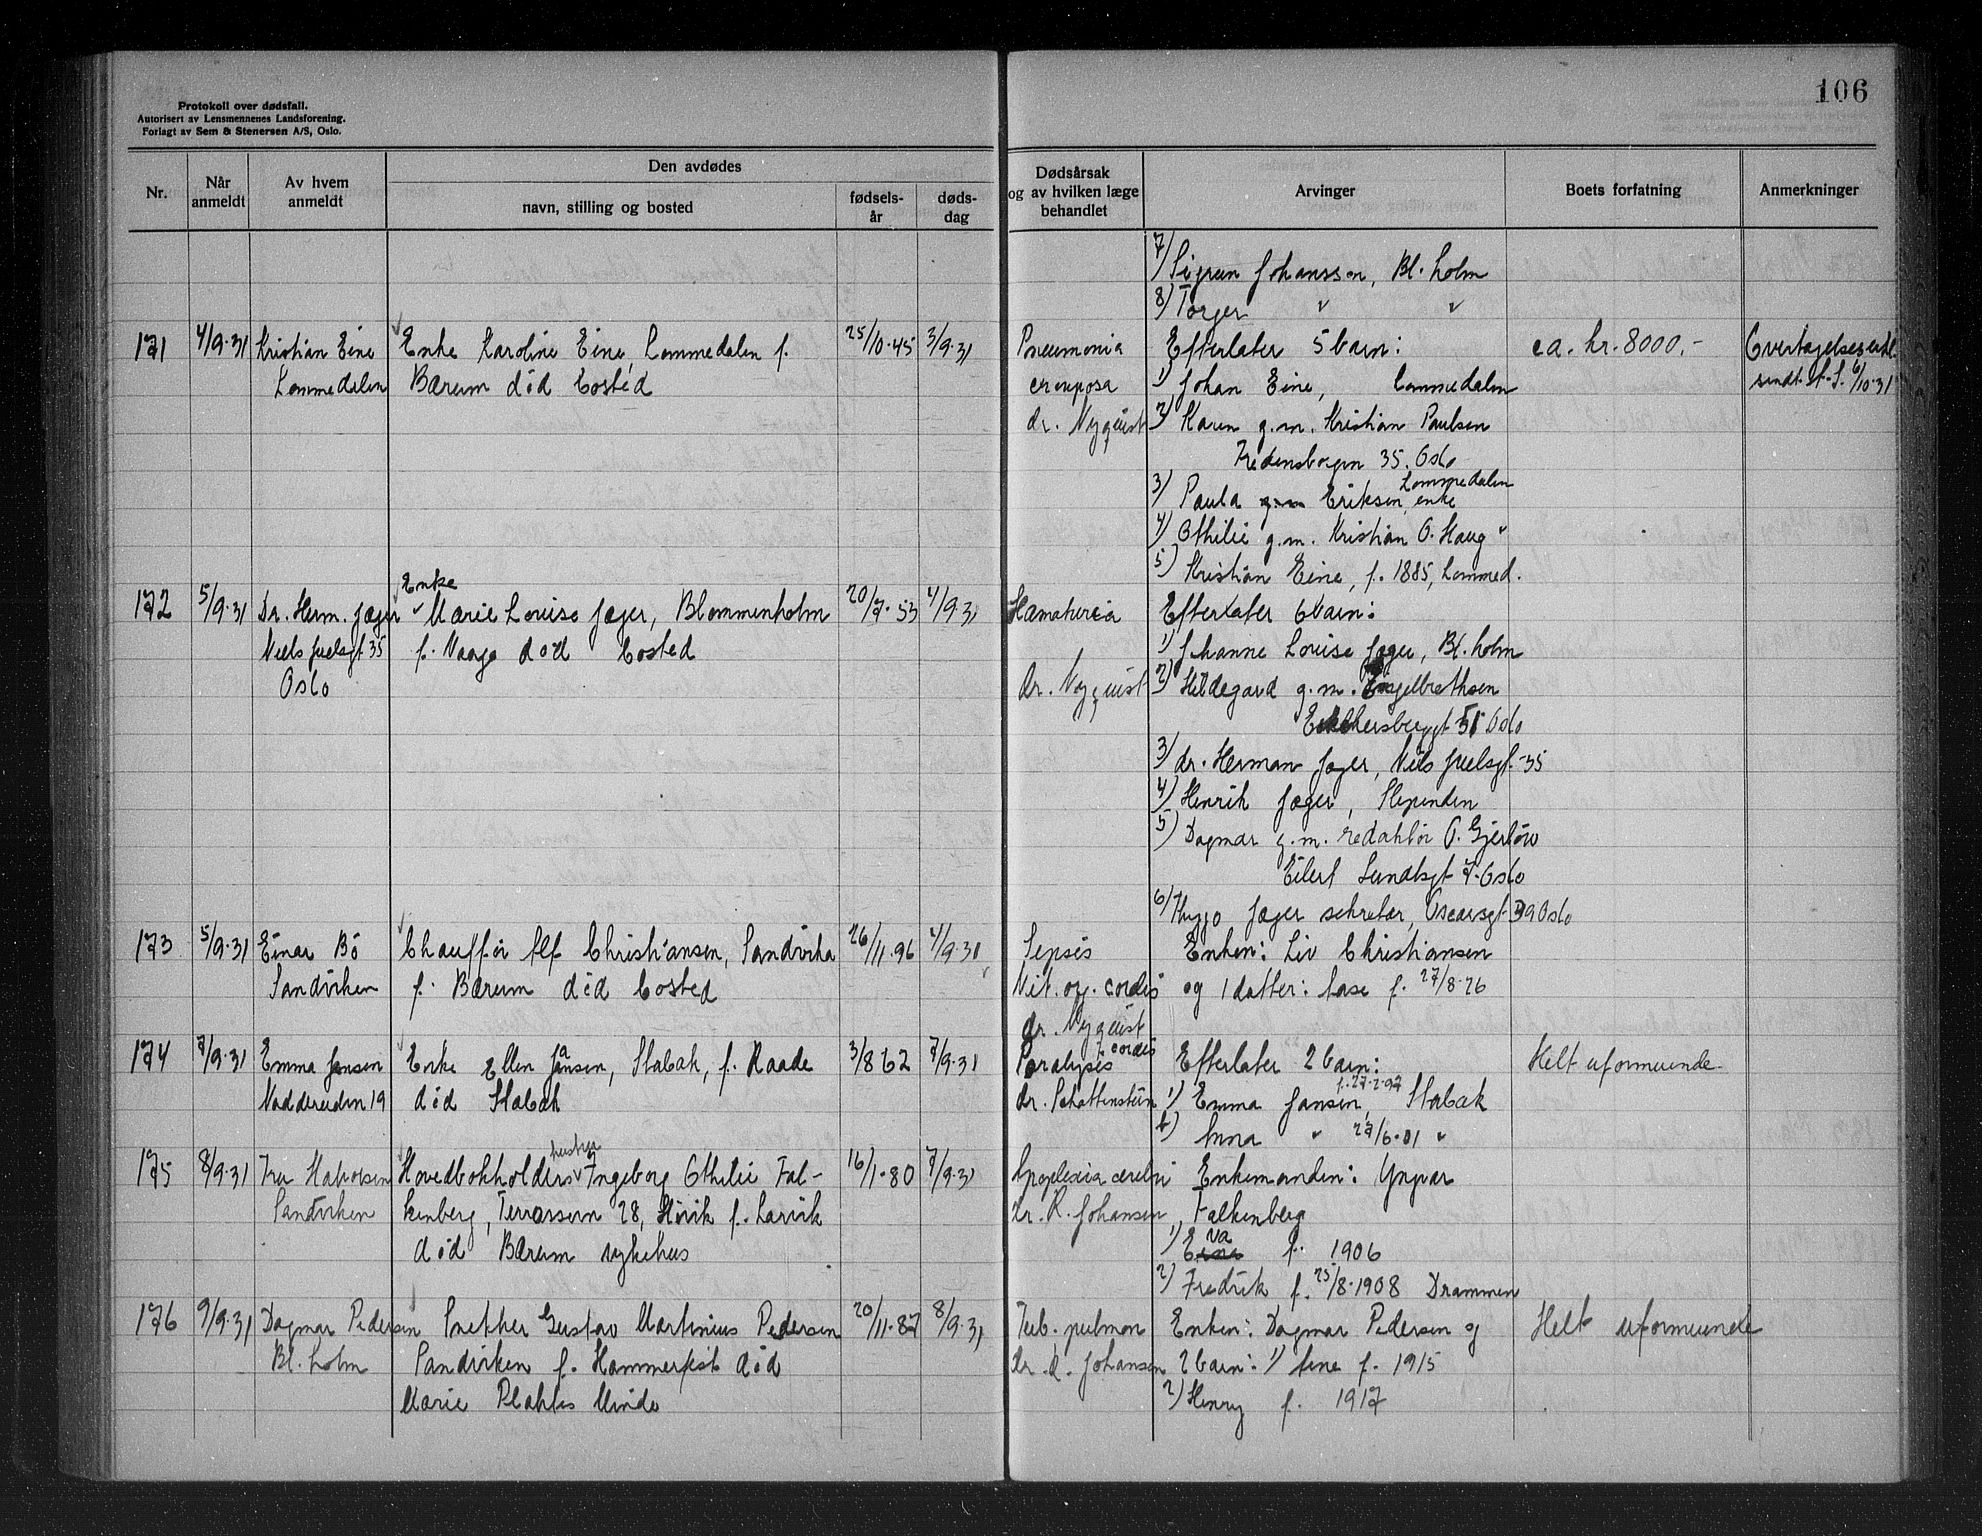 106
Protokoll over dødsfall.
Autorisert av Lensmennenes Landsforening.
Forlagt av Sem & Stenersen A/S, Oslo.
Nr.
Når anmeldt
Av hvem anmeldt
Den avdødes
navn, stilling og bosted
fødsels-år
døds-dag
Dødsårsak og av hvilken læge behandlet
Arvinger
Boets forfatning
Anmerkninger
7) Sigrun Johanssen, Bl. holm
8) Torger " "
171 4/9-31 Kristian Eine Enke Karoline Eine Lommedalen f. 25/10-45 3/9-31 Pneumonia Efterlater 5 barn: ca. kr. 8000.-
Lommedalen Bærum død bosted crouposa 1) Johan Eine, Lommedalen sendt 6/10-31
dr. Nyquist 2) Karen g.m. Kristian Paulsen
Fredensborgvn 35. Oslo
Lommedalen
3) Paula g.m. Eriksen, enke
4) Othilie g.m. Kristian O. Haug "
5) Kristian Eine, f. 1885, Lommed.
Enke
172 5/9-31 Dr. Herm. Jæger Marie Louise Jæger, Blommenholm 20/7-53 4/9-31 Hæmaturia Efterlater 6 barn:
Niels Juelsgt 35 f. Vaage død bosted 1) Johanne Louise Jæger, Bl. holm
Oslo dr. Nyquist 2) Hildegard g.m. Engelbrethsen
Eckhersberggt 51 Oslo
3) dr. Herman Jæger, Niels Juelsgt. 35
4) Henrik Jæger, Slependen
5) Dagmar g.m. redaktør O. Gjerløw
Eilert Sundtsgt 7. Oslo
6) Viggo Jæger sekretær, Oscarsgt 39 Oslo
173 5/9-31 Einar Bö Chauffør Alf Christiansen, Sandvika 26/11.96 4/9-31 Sepsis Enken: Liv Christiansen
Sandviken f. Bærum død bosted Vit. org. cordis og 1 datter: Aase f. 27/8-26
dr. Nyquist
174 7/9-31 Emma Jansen Enke Ellen Jansen, Stabæk, f. Raade 3/8 62 7/9-31 Paralysis cordis Efterlater 2 barn: Helt uformuende
Nadderudvn 19 død Stabæk dr. Schattenstein 1) Emma Jansen, f. 27-2-92 Stabæk
2) Anna " 27/6-01 "
hustru
175 8/9-31 Fru Halvorsen Hovedbokholders Ingeborg Othilie Fal- 16/1-80 7/9-31 Apoplexia cerebri Enkemanden: Yngvar
Sandviken kenberg, Terrassevn 28, Høvik f. Larvik dr. R. Johansen Falkenberg
død Bærum sykehus 1) Eva f. 1906
2) Fredrik f. 25/8-1908 Drammen
176 9/9-31 Dagmar Pedersen Snekker Gustav Martinius Pedersen 20/11-87 8/9-31 Tub. pulmon Enken: Dagmar Pedersen og Helt uformuende
Bl. holm Sandviken f. Hammerfest død dr. R. Johansen 2 barn: 1) Arne f. 1915
Marie Plahtes Minde 2) Henry f. 1917